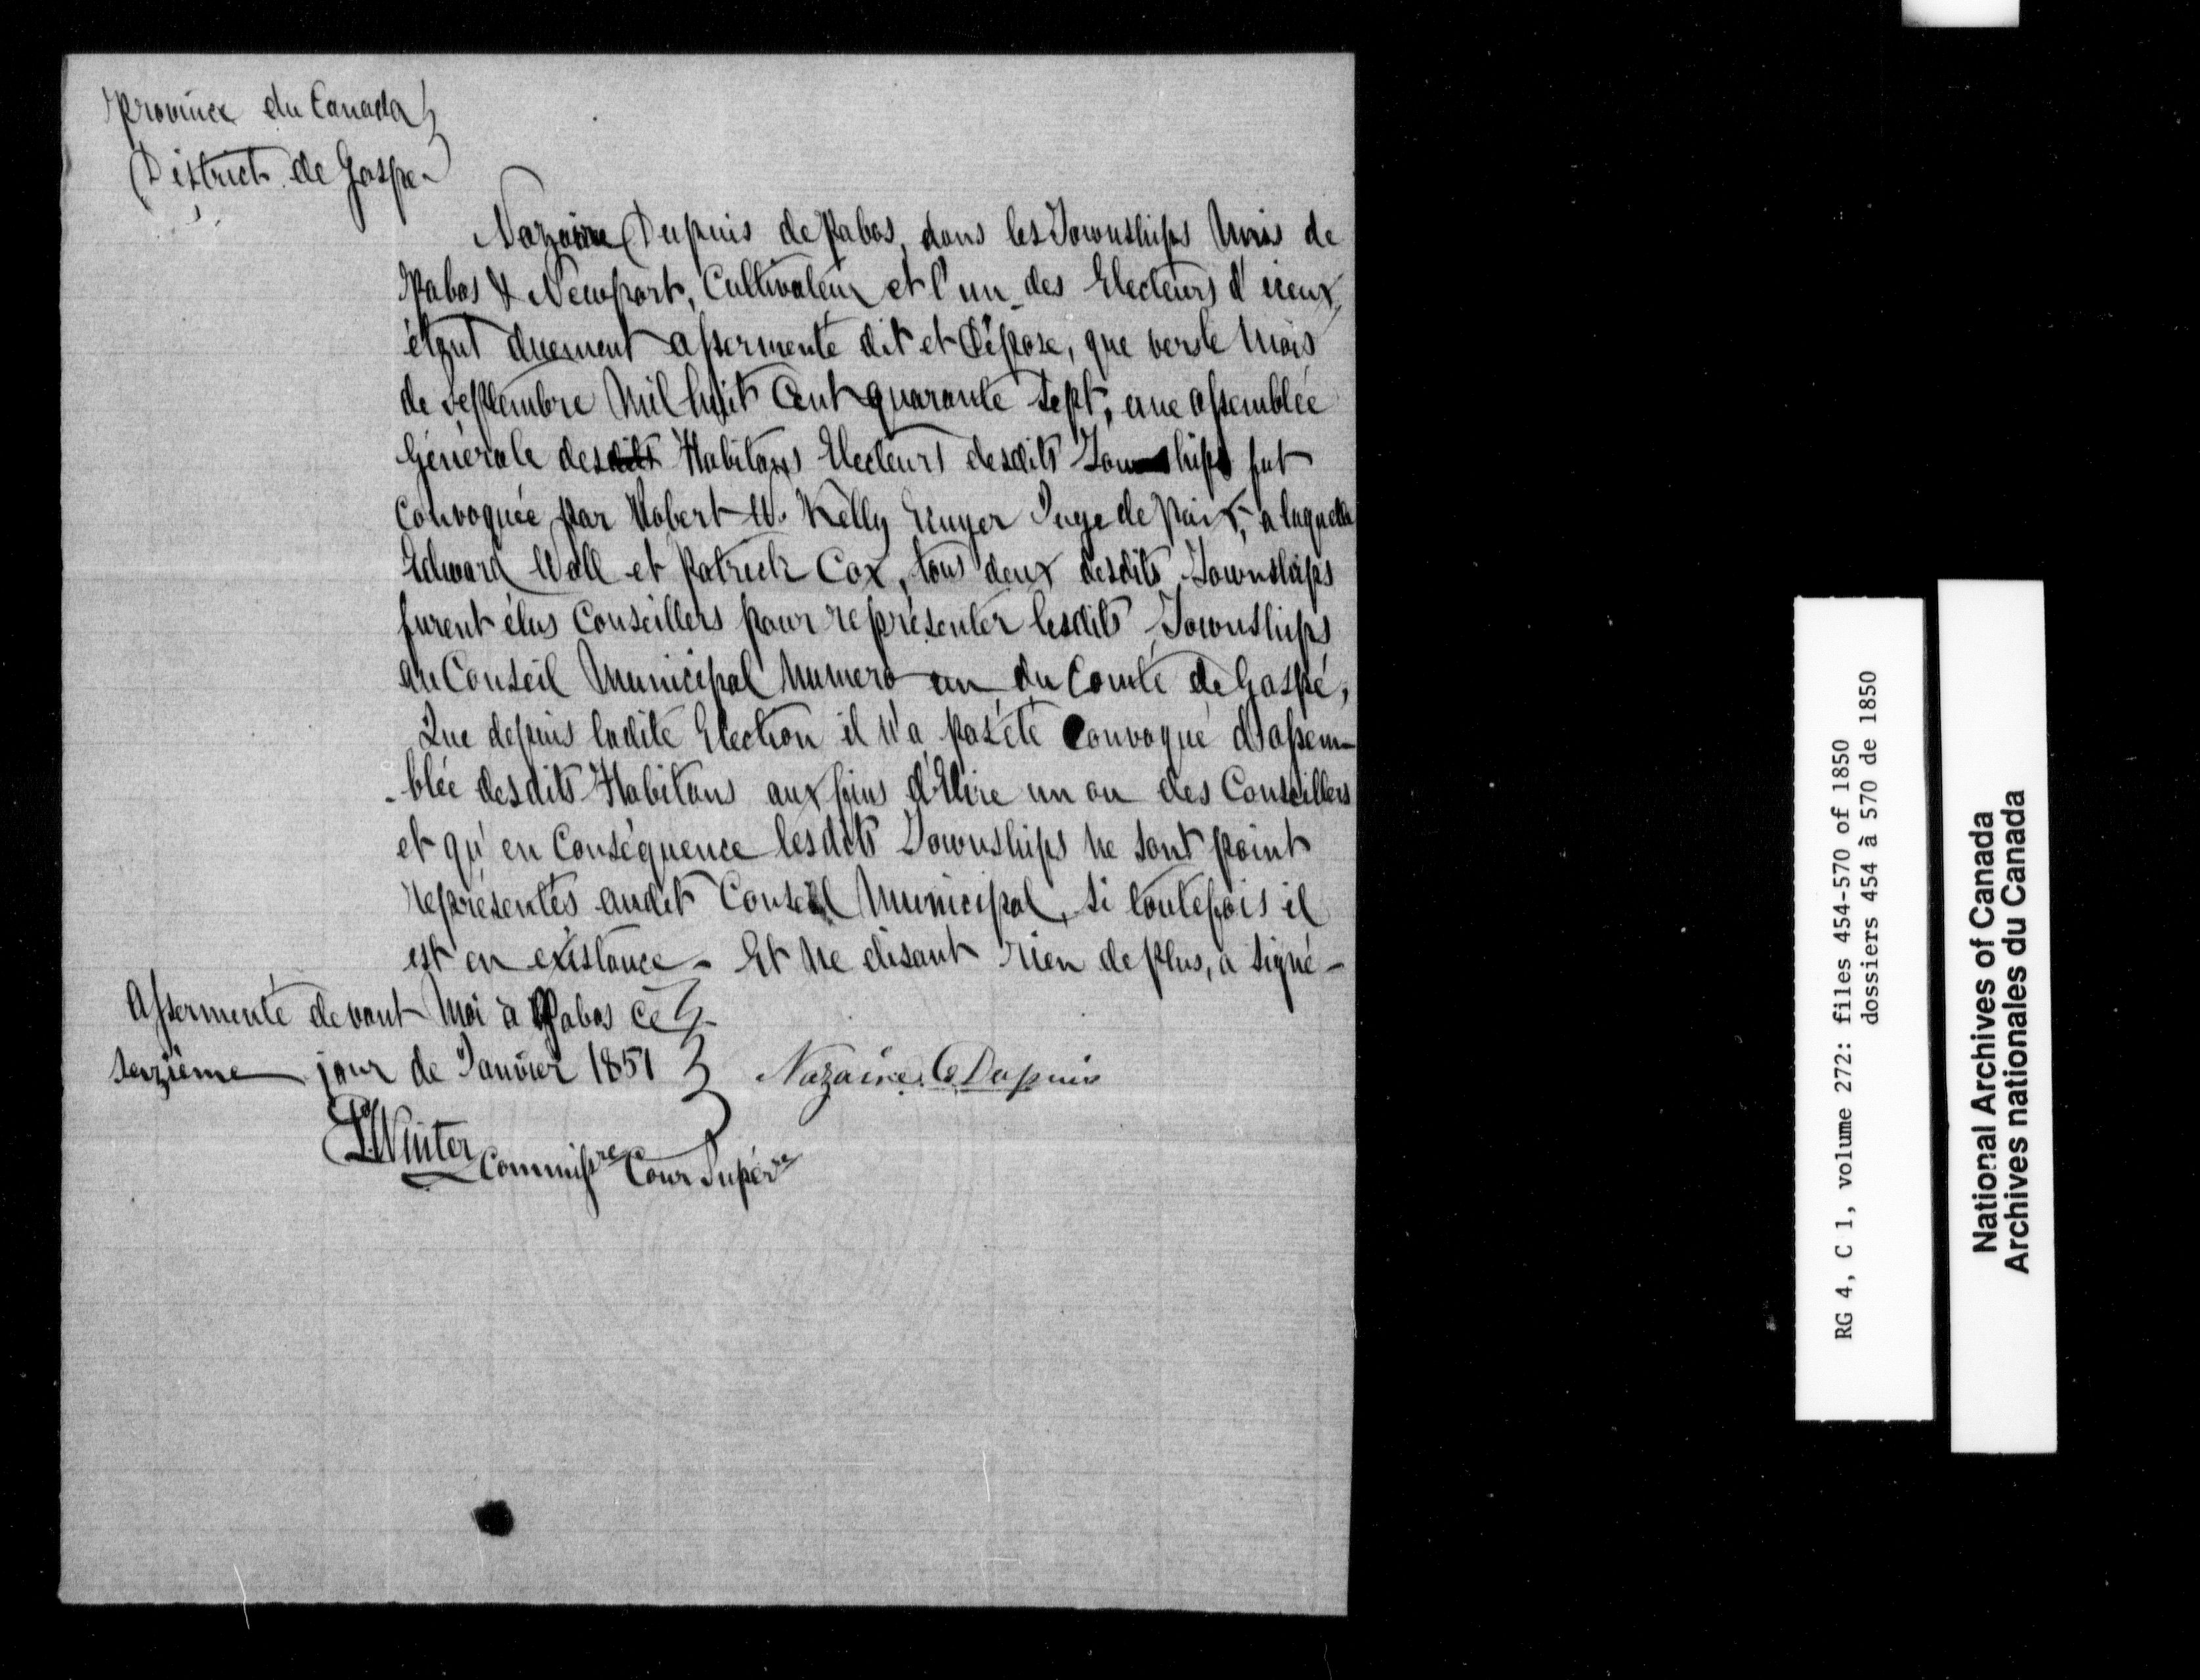 Province du Canada }
District de Gaspé
Nazaire Dupuis de Pabos, dans les Townships Unis de
Pabos & Newport, Cultivateur et l'un des Electeurs d'iceux,
étant duement assermenté dit et Dépose, que vers le Mois
de septembre Mil huit Cent quarante sept, une assemblée
Générale desdits Habitans Electeurs desdits Townships fut
Convoquée par Robert W. Kelly Ecuyer Juge de Paix, a laquelle
Edward Wall et Patrick Cox, tous deux desdits Townships
furent élus Conseillers pour représenter lesdits Townships
au Conseil Municipal Numero un du Comté de Gaspé,
Que depuis ladite Election il n'a pas été Convoqué d'assem-
-blée desdits Habitans aux fins d'Elire un ou des Conseillers
et qu'en Conséquence lesdits Townships ne sont point
représentés audit Conseil Municipal, si toutefois il
est en existance - Et ne disant rien de plus, a signé -
Assermenté devant Moi à Pabos ce
seizième jour de Janvier 1851 } Nazaire Dupuis
Winter Commissre Cour Supérre
RG 4, C 1, volume 272: files 454-570 of 1850
dossiers 454 à 570 de 1850
National Archives of Canada
Archives nationales du Canada